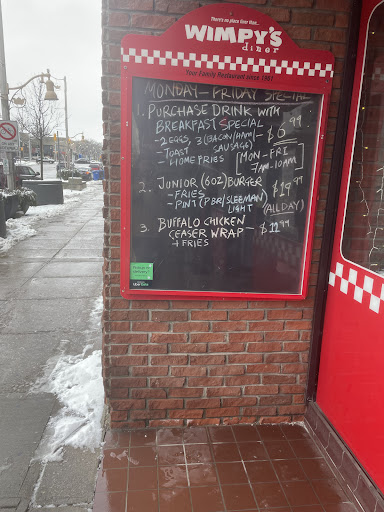 There's no place finer than...
WIMPY'S
diner
Your Family Restaurant since 1961
MONDAY - FRIDAY SPECIAL
1. PURCHASE DRINK WITH
BREAKFAST SPECIAL
- 2 EGGS, 3 (BACON/HAM/ - $6.99
SAUSAGE)
- TOAST
- HOMEFRIES
[MON - FRI
7AM - 10AM]
2. JUNIOR (6OZ) BURGER
- FRIES - $19.99
- PINT (PBR/SLEEMAN
LIGHT (ALL DAY)
3. BUFFALO CHICKEN
CEASER WRAP - $11.99
+ FRIES